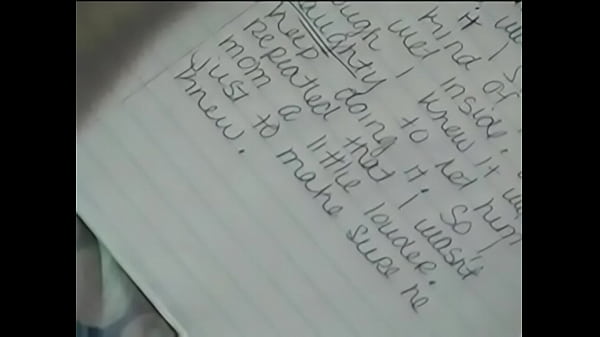 it I
kind of
wet inside.
I knew it
naughty to let him
help doing it, so I
repeated that I wasn't
mom a little louder.
just to make sure he
knew.